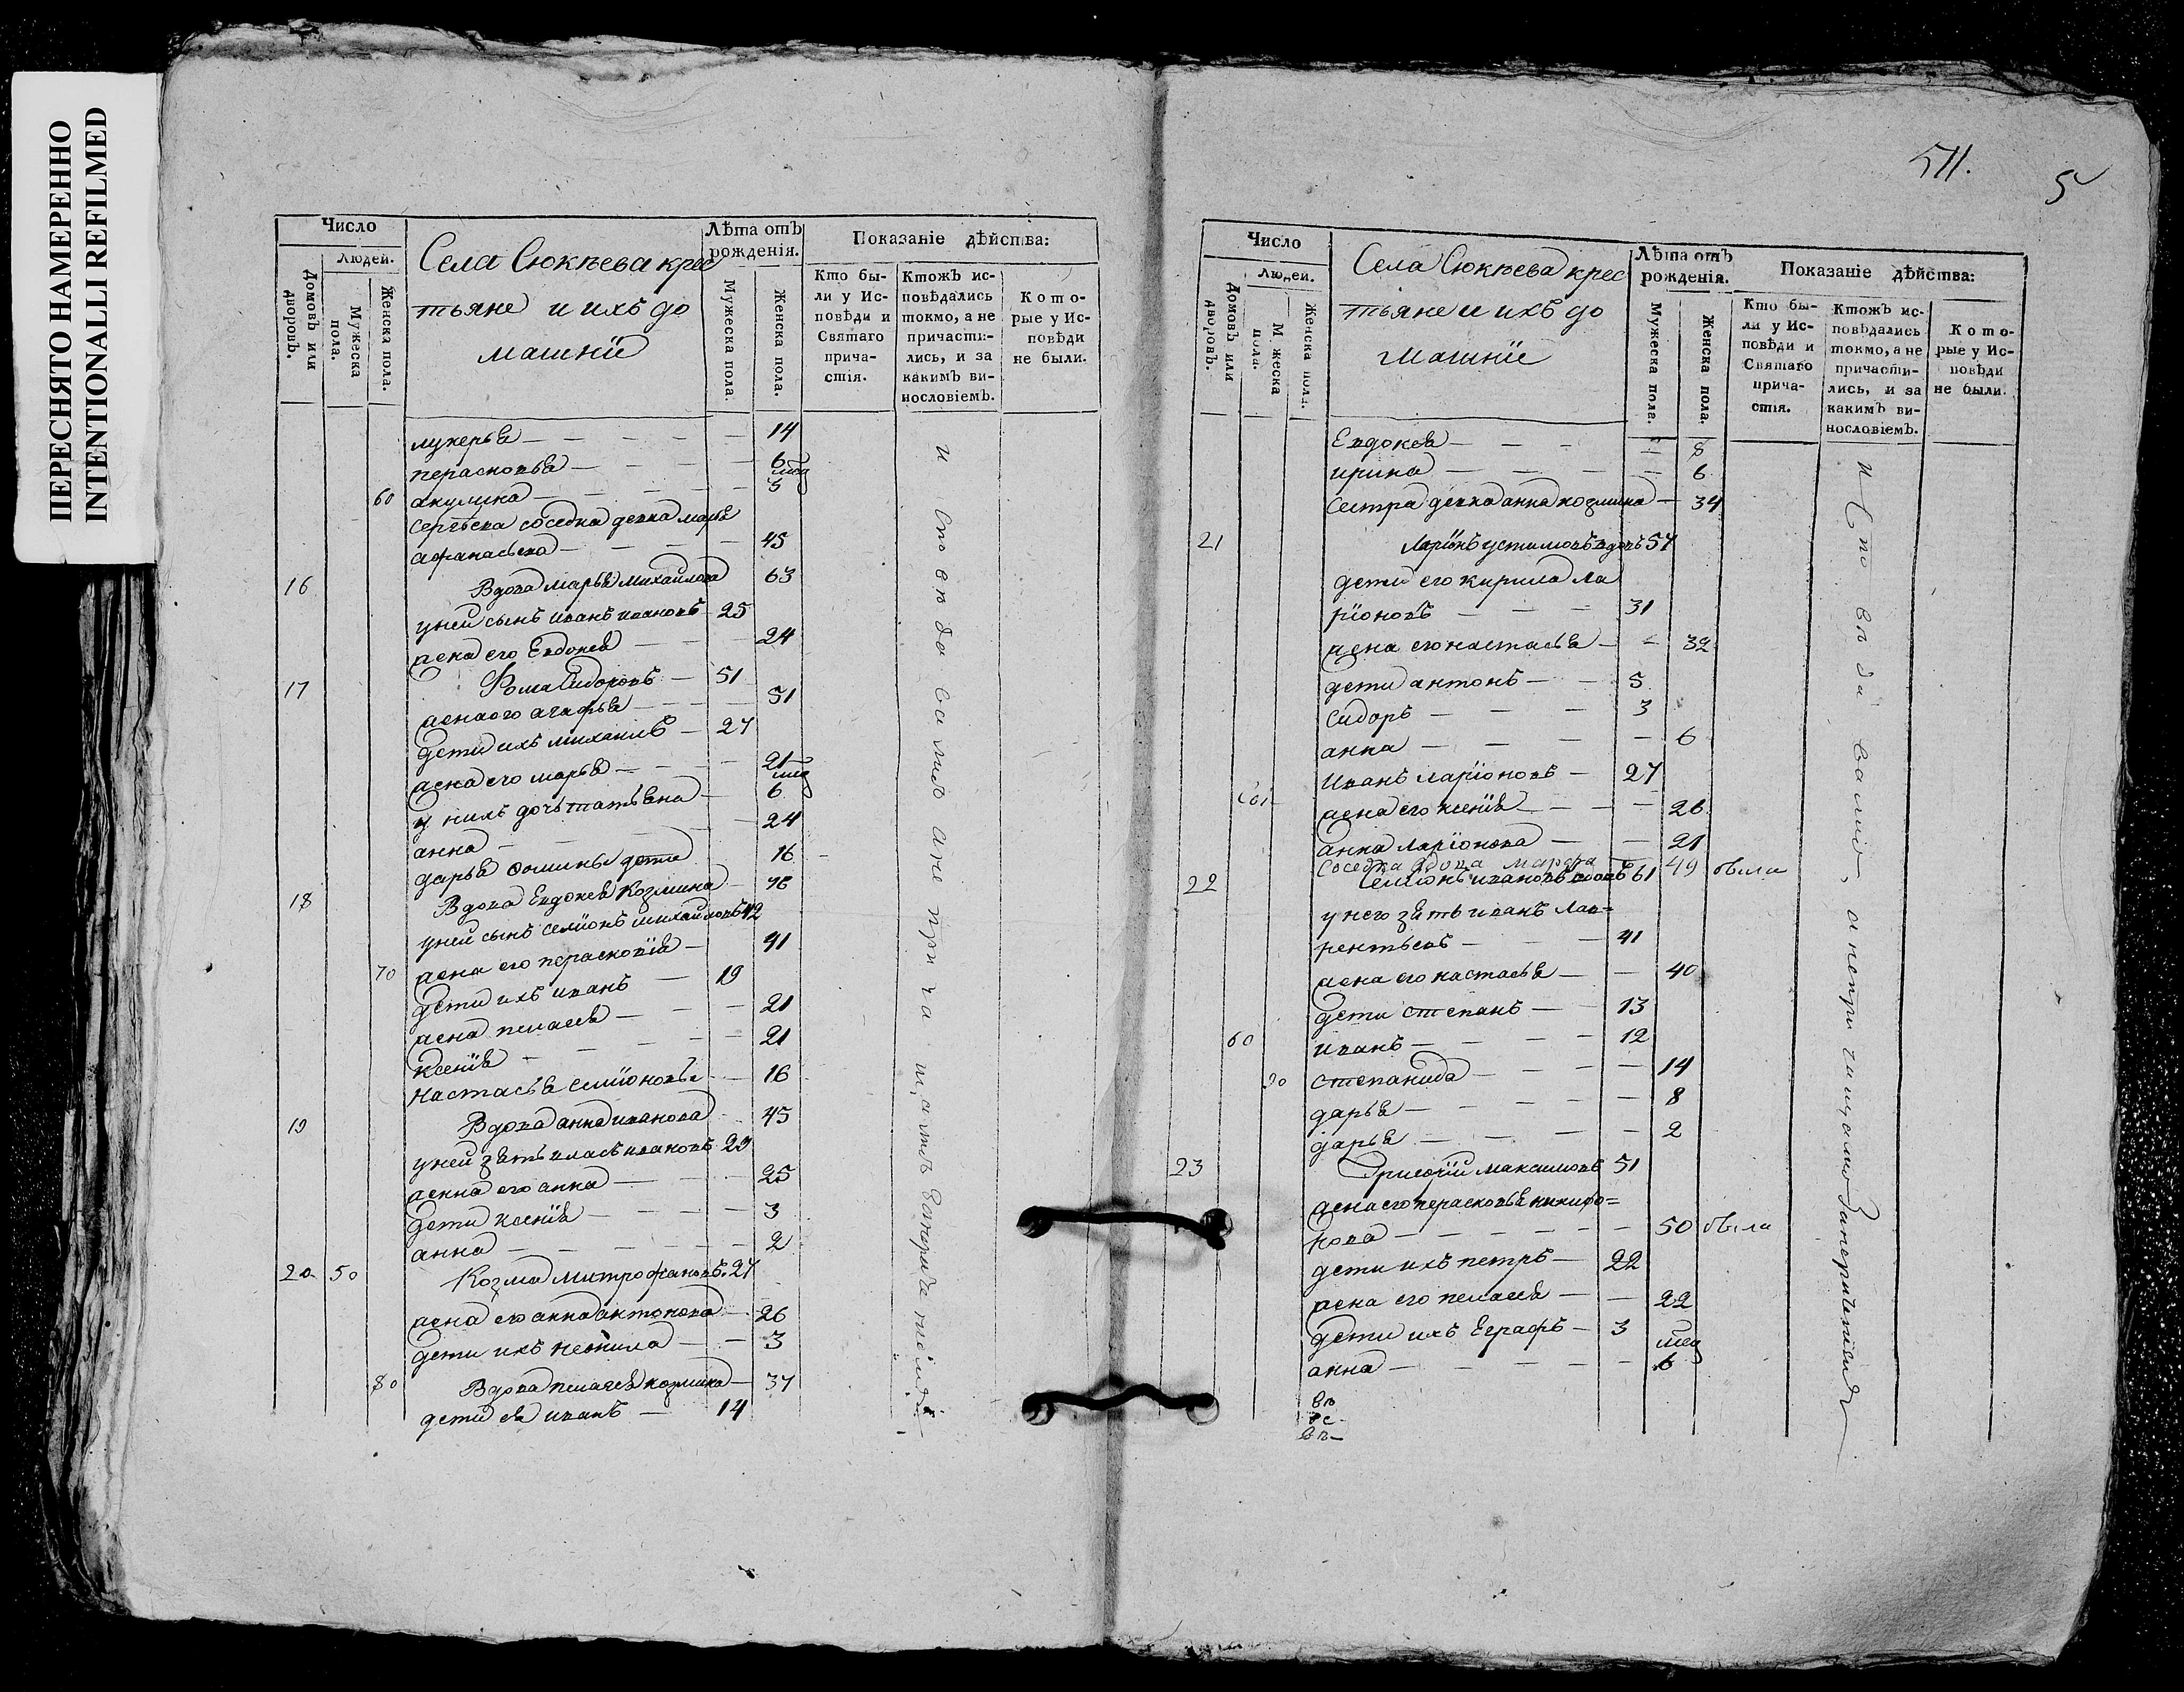 ПЕРЕСНЯТО НАМЕРЕННО
INTENTIONALLI REFILMED
Число
Людей.
Домовъ или дворовъ.
Мужеска пола.
Женска пола.
Села Сюкѣева крес
тьяне и ихъ до
машнїе
Лѣта отъ рожденія.
Мужеска пола.
Женска пола.
Показаніе дѣйства:
Кто бы-
ли у Ис-
повѣди и
Святаго
прича-
стія.
Ктожъ ис-
повѣдались
токмо, а не
причасти-
лись, и за
какимъ ви-
нословіемъ.
Кото-
рые у Ис-
повѣди
не были.
лукерья — 14
перасковья — 6
60 акулина — мѣд 5
Сергѣева соседка девка марья
афанасьева — 45
16 Вдова марья михайлова 63
у ней сынъ иванъ ивановъ 25
жена его Евдокея — 24
17 Фома Сидоровъ — 51
жена его агафья — 51
дети ихъ михаилъ — 27
жена его марья — 21
у нихъ дочь татьяна — 6
анна — 24
дарья Фомины дети 16
18 Вдова Евдокея Козмина —
у ней сынъ семионъ михайловъ 42
70 жена его перасковїя — 41
дети ихъ иванъ — 19
жена пелагея — 21
ксенїя — 21
настасья семионовы — 16
19 Вдова анна иванова 45
у ней зять власъ ивановъ 29
женна его анна — 25
дети ксенїя — 3
анна — 2
20 50 Козма Митрофановъ 27
жена его анна антонова — 26
дети ихъ неонила — 3
80 Вдова пелагея козмина — 37
дети ея иванъ — 14
исповѣдовались а не причащались
511.
5
Число
Людей.
Домовъ или дворовъ.
Мужеска пола.
Женска пола.
Села Сюкѣева крес
тьяне и ихъ до
машнїе
Лѣта отъ рожденія.
Мужеска пола.
Женска пола.
Показаніе дѣйства:
Кто бы-
ли у Ис-
повѣди и
Святаго
прича-
стія.
Ктожъ ис-
повѣдались
токмо, а не
причасти-
лись, и за
какимъ ви-
нословіемъ.
Кото-
рые у Ис-
повѣди
не были.
Евдокея — 8
ирина — 6
Сестра девка анна козмина — 34
21 Ларїонъ устимовъ вдовъ 57
дети его кирила ла
рїоновъ — 31
жена его настасья — 32
дети антонъ — 5
Сидоръ — 3
анна — 6
Иванъ ларїоновъ — 27
жена его ксенїя — 26
анна ларїонова — 21
Соседка вдова марфа 49 была
22 Семионъ ивановъ вдовъ 61
у него зять иванъ лав=
рентьевъ — 41
жена его настасья — 40
дети степанъ — 13
60 иванъ — 12
90 степанида — 14
дарья — 8
дарья — 2
23 Григорїй максимовъ 51
жена его перасковья никифо=
рова — 50 была
дети ихъ петръ — 22
жена его пелагея — 22
дети ихъ Еграфъ — 3
анна — 6
исповѣдовались, а не причащались